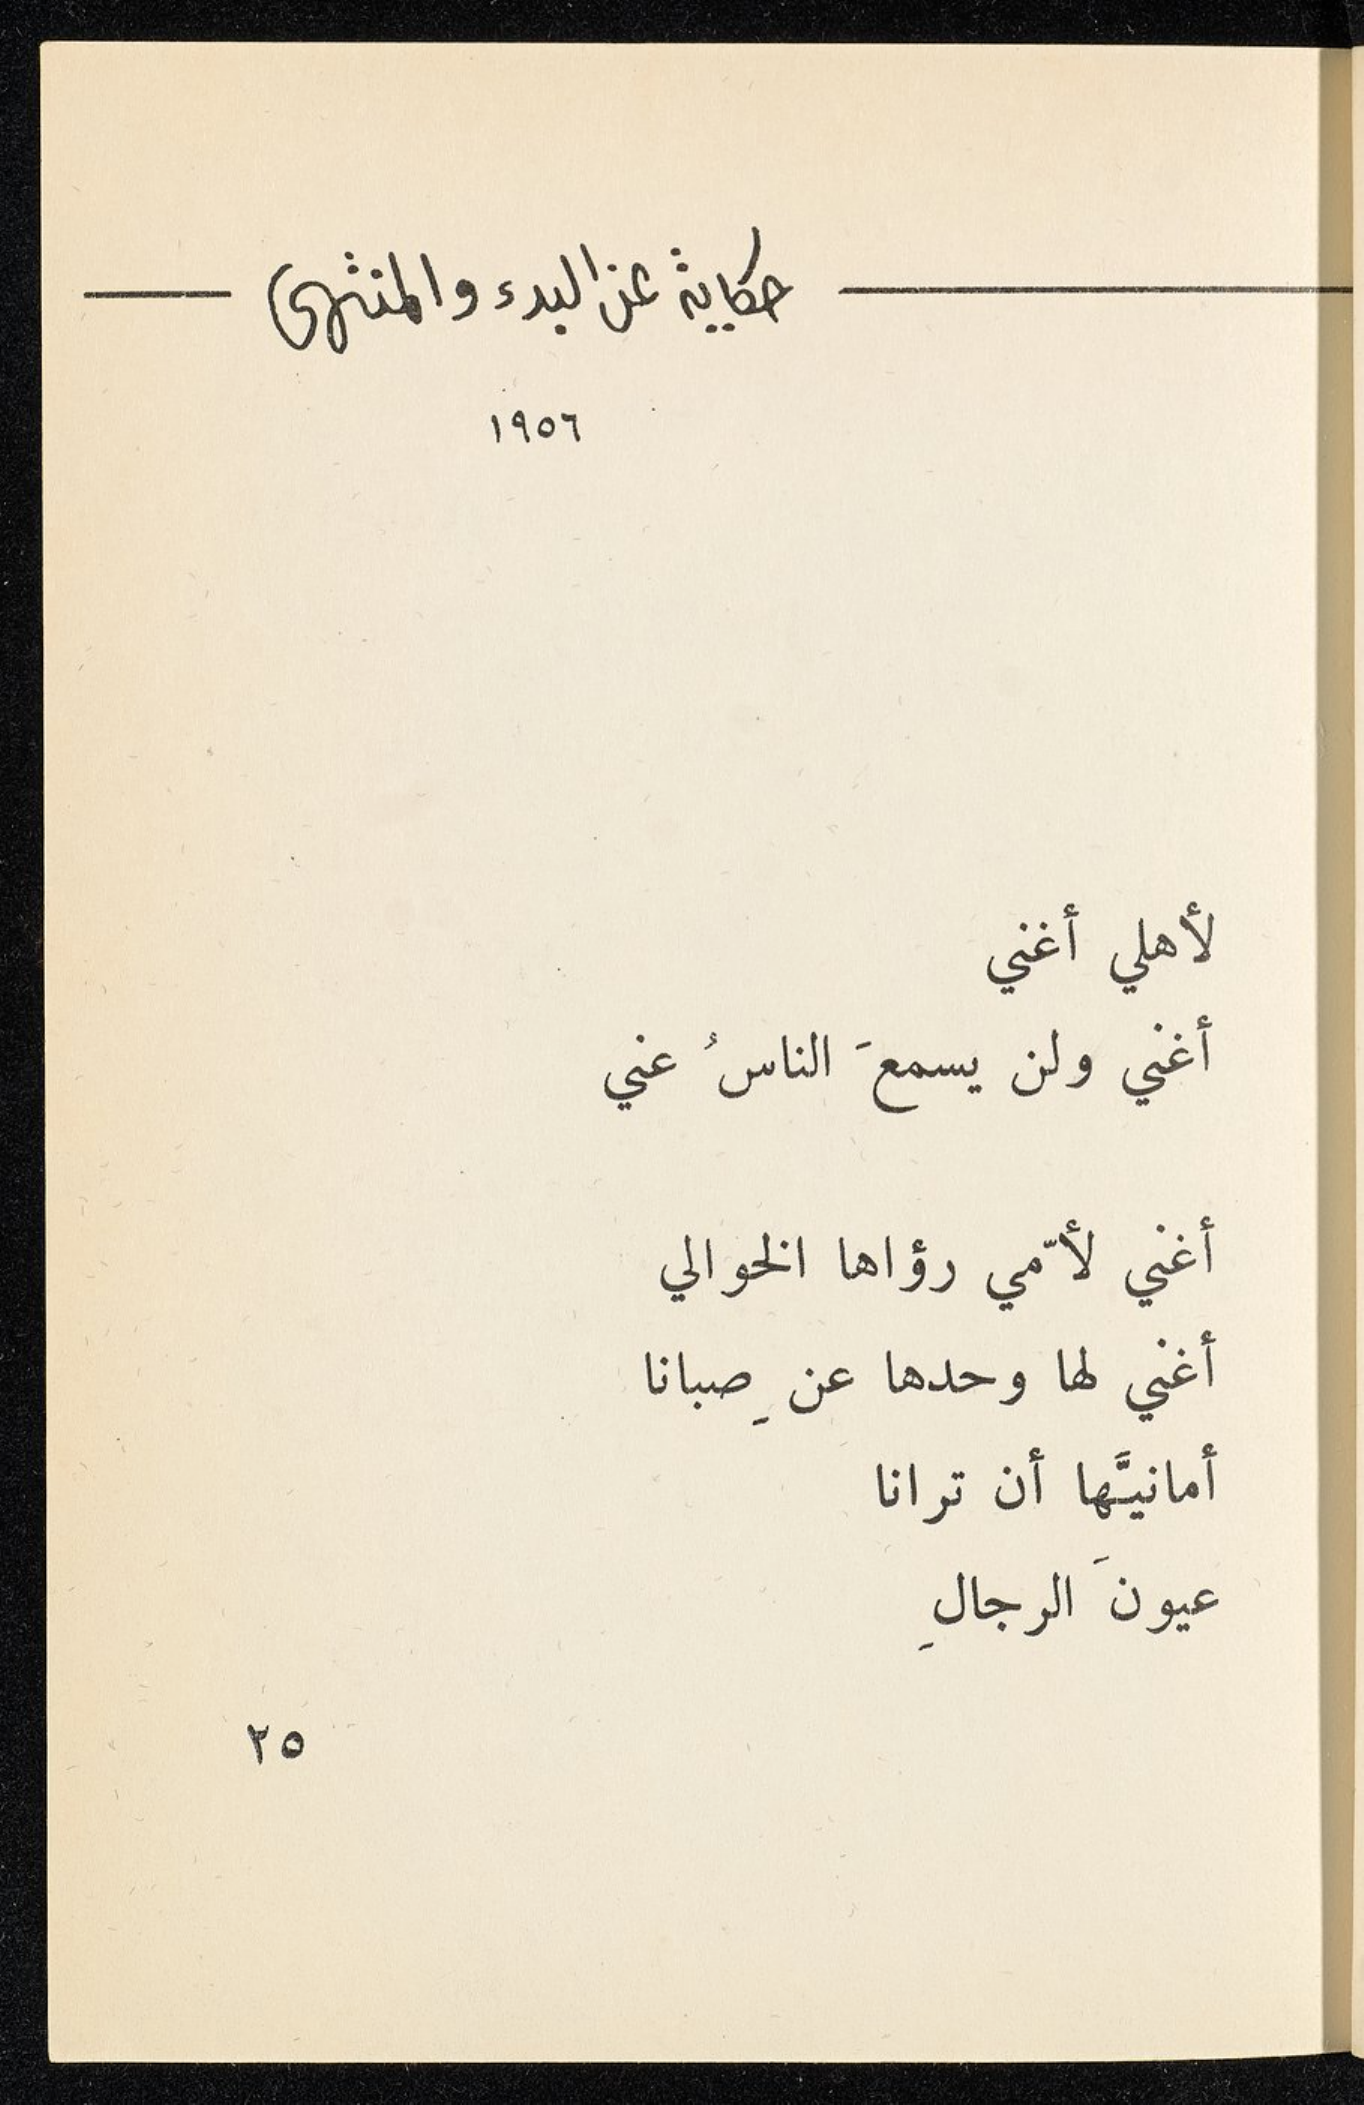 حكاية عن البدء والمنتهى
١٩٥٦
لأهلي أغني
أغني ولن يسمعَ الناسُ عني
أغني لأمّي رؤاها الخوالي
أغني لها وحدها عن صِبانا
أمانيَّها أن ترانا
عيونَ الرجالِ
٢٥